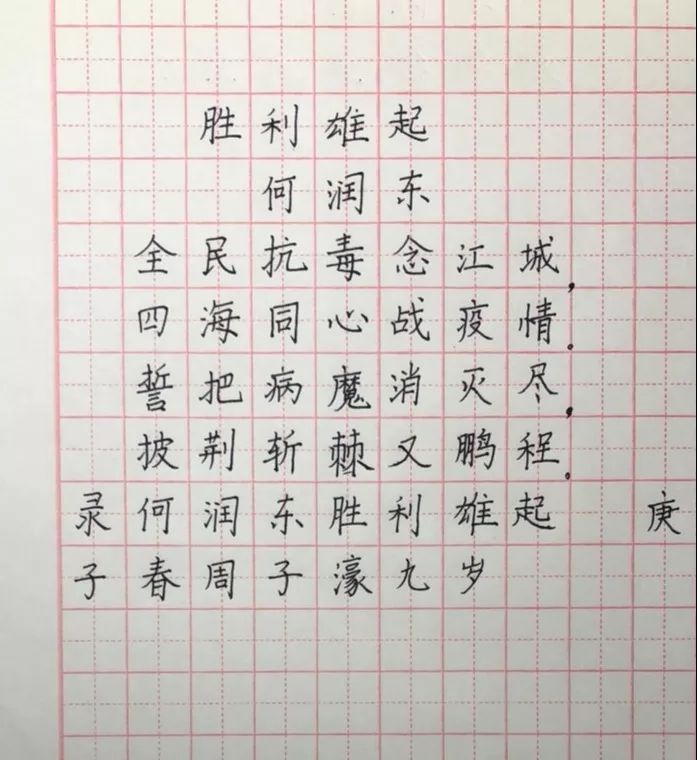 胜利雄起
何润东
全民抗毒念江城，
四海同心战疫情。
誓把病魔消灭尽，
披荆斩棘又鹏程。
录何润东胜利雄起 庚
子春周子濠九岁